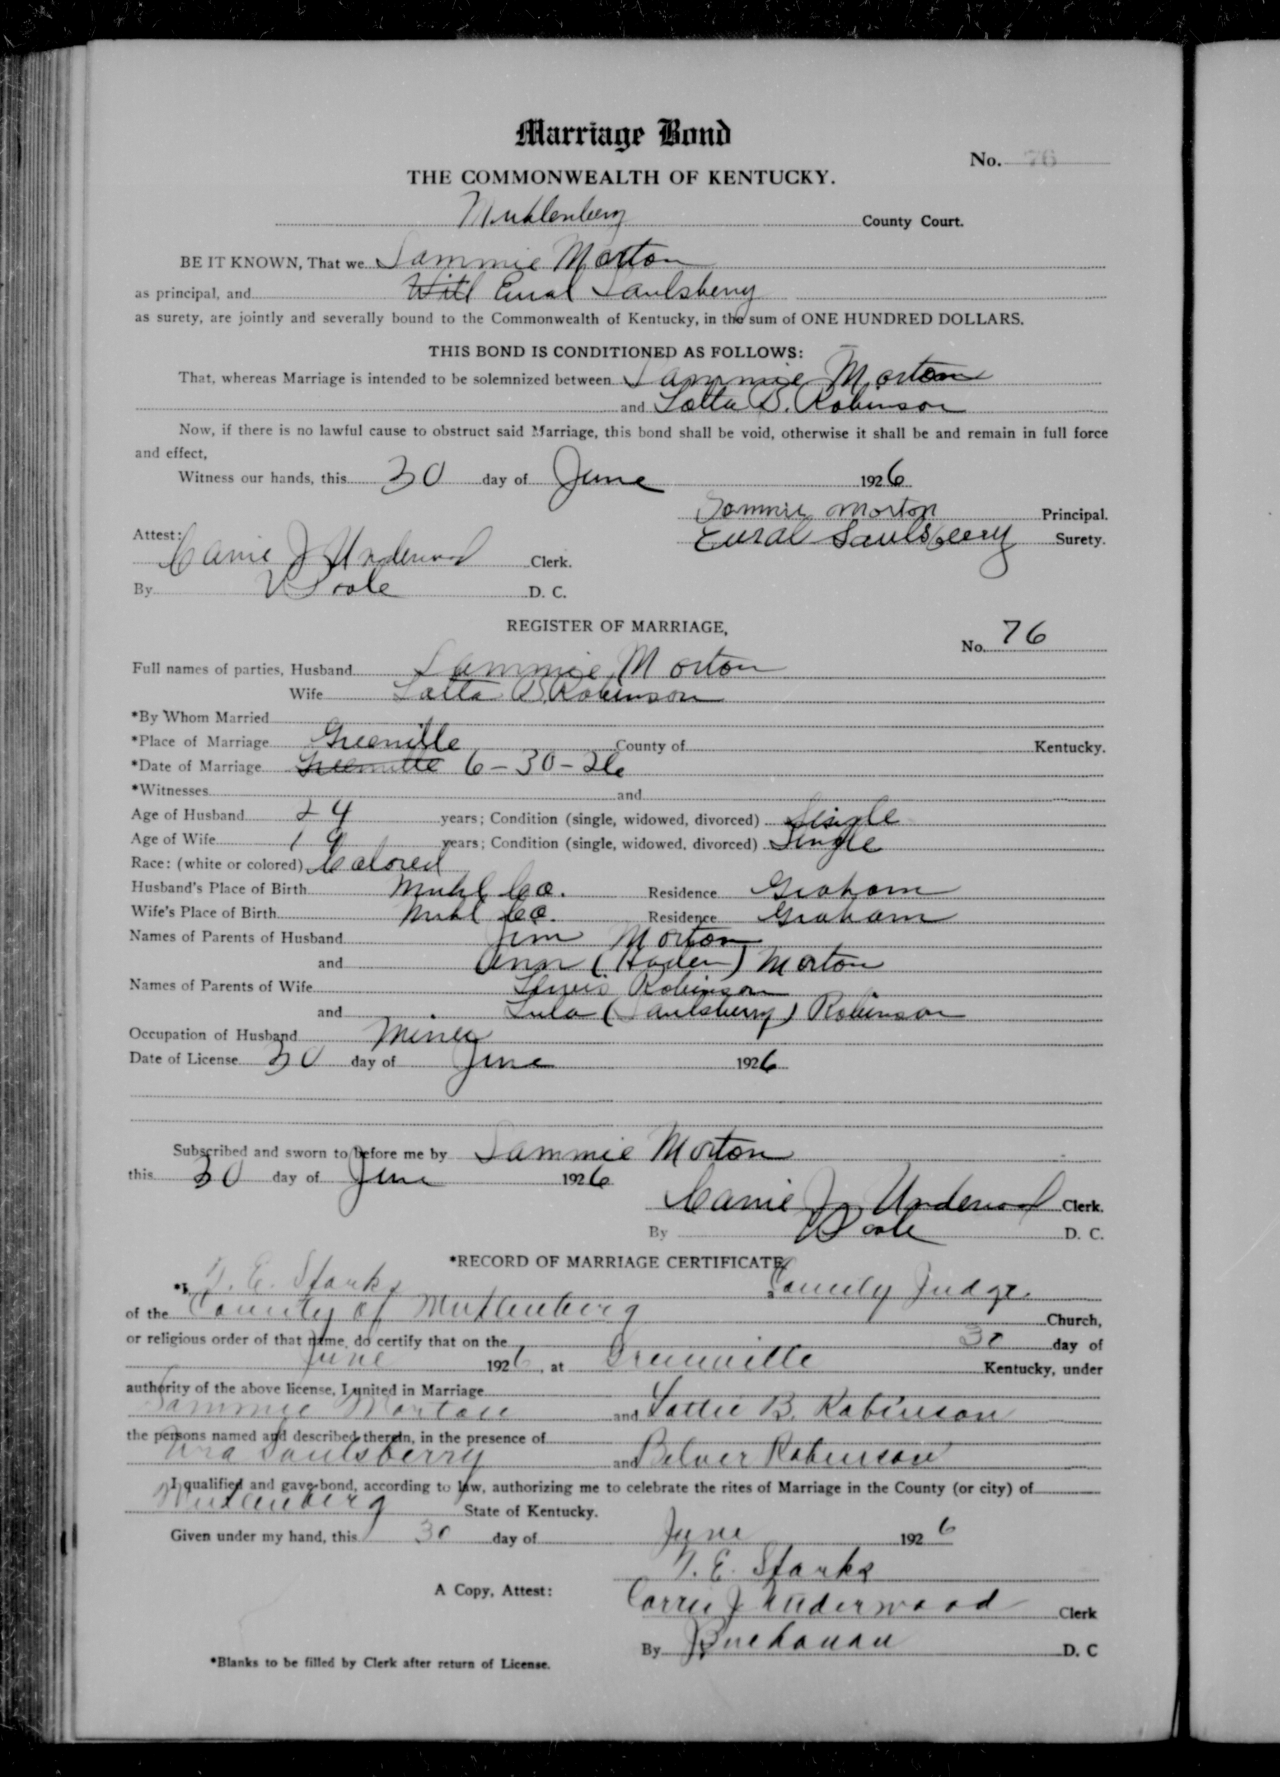 Marriage Bond
No. 76
THE COMMONWEALTH OF KENTUCKY.
Muhlenberg County Court.
BE IT KNOWN, That we Sammie Morton
as principal, and Will Eural Saulsberry
as surety, are jointly and severally bound to the Commonwealth of Kentucky, in the sum of ONE HUNDRED DOLLARS.
THIS BOND IS CONDITIONED AS FOLLOWS:
That, whereas Marriage is intended to be solemnized between Sammie Morton
and Lottie B. Robinson
Now, if there is no lawful cause to obstruct said Marriage, this bond shall be void, otherwise it shall be and remain in full force
and effect,
Witness our hands, this 30 day of June 1926
Sammie Morton Principal.
Attest: Eural Saulsberry Surety.
Carrie J Underwood Clerk.
By V Poole D. C.
REGISTER OF MARRIAGE,
No. 76
Full names of parties, Husband Sammie Morton
Wife Lottie B Robinson
*By Whom Married
*Place of Marriage Greenville County of Kentucky.
*Date of Marriage Greenville 6-30-26
*Witnesses and
Age of Husband 24 years; Condition (single, widowed, divorced) Single
Age of Wife 19 years; Condition (single, widowed, divorced) Single
Race: (white or colored) Colored
Husband's Place of Birth Muhl Co. Residence Graham
Wife's Place of Birth Muhl Co. Residence Graham
Names of Parents of Husband Jim Morton
and Ann (Haden) Morton
Names of Parents of Wife Lewis Robinson
and Lula (Saulsberry) Robinson
Occupation of Husband Miner
Date of License 30 day of June 1926
Subscribed and sworn to before me by Sammie Morton
this 30 day of June 1926
Carrie J Underwood Clerk.
By V Poole D. C.
*RECORD OF MARRIAGE CERTIFICATE
*I, T. E. Starks County Judge
of the County of Muhlenberg Church,
or religious order of that name, do certify that on the 30 day of
June 1926, at Greenville Kentucky, under
authority of the above license, I united in Marriage
Sammie Morton and Lottie B. Robinson
the persons named and described therein, in the presence of
Ura Saulsberry and Belver Robinson
I qualified and gave bond, according to law, authorizing me to celebrate the rites of Marriage in the County (or city) of
Muhlenberg State of Kentucky.
Given under my hand, this 30 day of June 1926
T. E. Starks
A Copy, Attest: Carrie J Underwood Clerk
By J Buchanan D. C
*Blanks to be filled by Clerk after return of License.